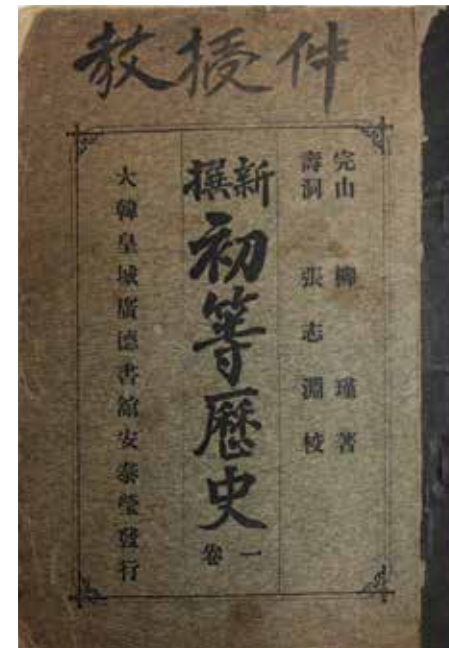 教授件
完山 柳瑾著
壽洞 張志淵校
新撰初等歷史
卷一
大韓皇城廣德書館安泰瑩發行